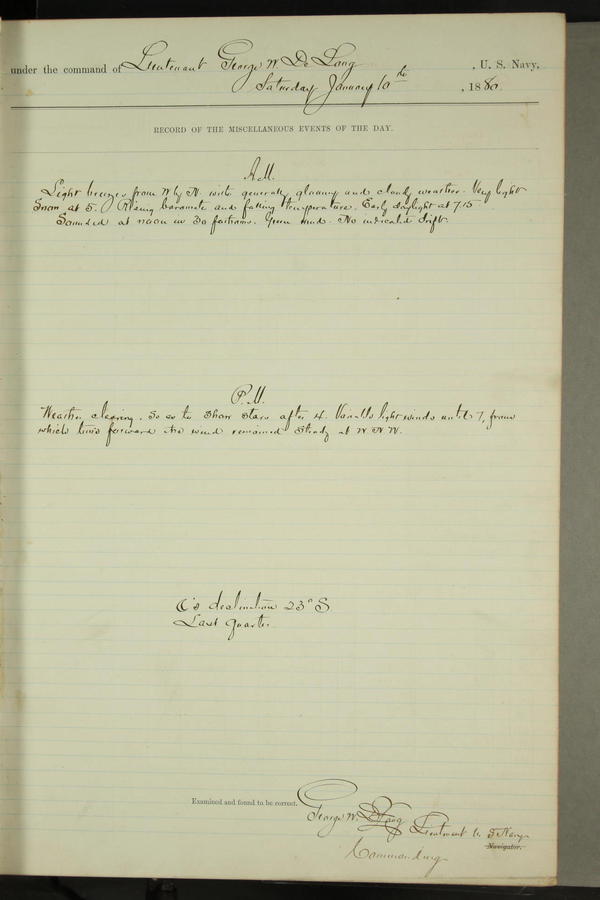 under the command of Lieutenant George W. De Long, U. S. Navy,
Saturday January 10th, 1880.
RECORD OF THE MISCELLANEOUS EVENTS OF THE DAY.
A.M.
Light breezes from N by W. with generally gloomy and cloudy weather. Very light
Snow at 5. Rising barometer and falling temperature. Early daylight at 7.15
Sounded at noon in 30 fathoms. Green mud. No indicated drift.
P.M.
Weather clearing. So as to show stars after 4. Variable light winds until 7, from
which time forward the wind remained steady at W.N.W.
☾'s declination 23° S
Last quarter.
Examined and found to be correct.
George W. De Long Lieutenant U. S Navy.
Navigator.
Commanding